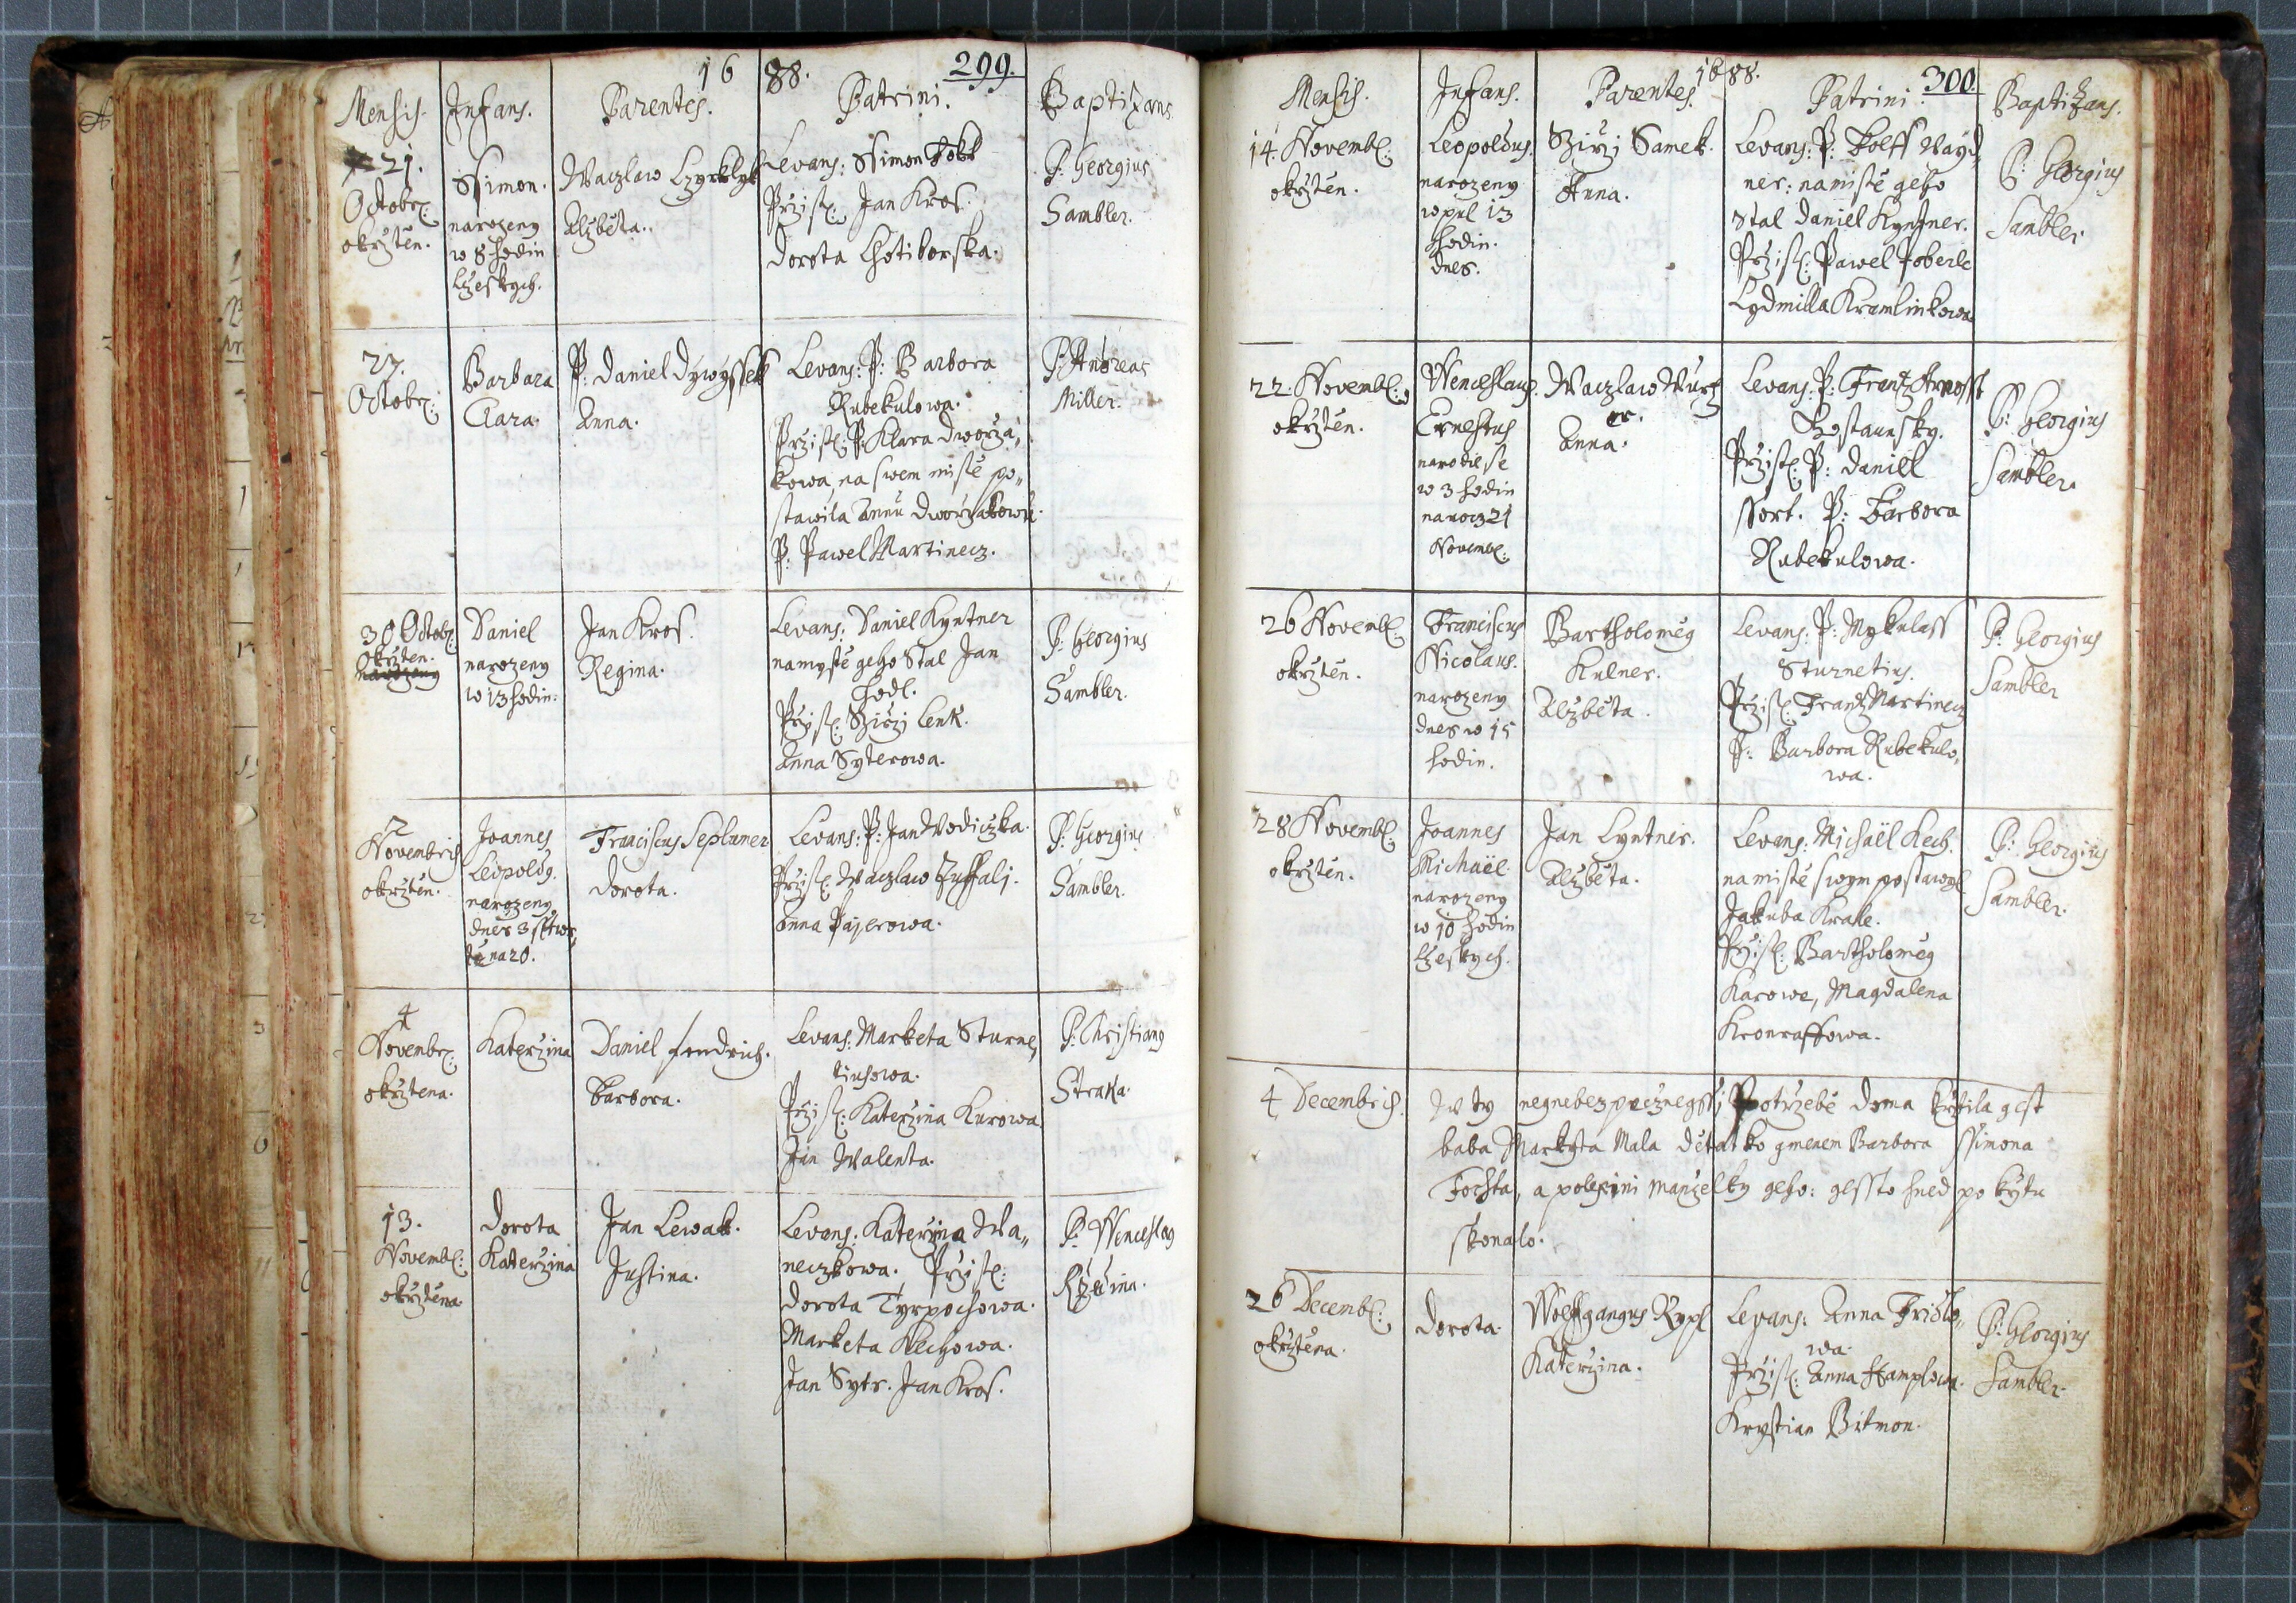 16 88. 299.
Mensis. Infans. Parentes. Patrini. Baptizans.
21.
Octobr:
okrztěn.
Ssimon.
narozeny
w 8 hodin
Czeskych.
Waczlaw
Alzběta.
Levans: Ssimon Fokt
Przist: Jan Kros.
Dorota Chotiborska.
P: Georgius
Sambler.
27.
Octobr:
Barbara
Clara.
P: Daniel Dywyssek
Anna.
Levans: P: Barbora
Rubekulowa.
Przist: P: Klara Dworza,
kowa, na swem mistě po,,
stawila Annu Dworzakowu.
P: Pawel Martinecz.
P: Andreas
Miller.
30 Octob:
okrzten.
narozeny
Daniel
narozeny
w 13 hodin.
Jan Kros.
Regina.
Levans: Daniel Kyntner
namystě geho Stal Jan
Hodl.
Przist: Jirzj Lenk.
Anna Syterowa.
P: Georgius
Sambler.
2
Novembris
okrztěn.
Joannes
Leopoldg.
narozeny
dnes 3 sstwr,
tě na 20.
Franciscus Seplumer
Dorota.
Levans: P: Jan Wodiczka.
Przist: Waczlaw
Anna Pajerowa.
P: Georgius
Sambler.
4
Novembr:
okrztena.
Katerzina
Daniel Fendrich.
Barbora.
Levans: Marketa Sturne,
tiusowa.
Przist: Katerzina Kurowa
Jan Walenta.
P: Christiang
Straka.
13.
Novemb:
okrztěna
Dorota
Katerzina
Jan Lewak.
Justina.
Levans: Katerzina Wa,,
neczkowa. Przist:
Dorota Tyrpochowa.
Marketa Klechowa.
Jan Sytr. Jan Kros.
P: Wenceslag
Růžina.
1688. 300.
Mensis. Infans. Parentes. Patrini. Baptizans.
14. Novemb:
okrztěn.
Leopoldus.
narozeny
w pul 13
hodin.
dnes.
Jirzj Samek.
Anna.
Levans: P: Wolff Wayd,
ner: namistě geho
Stal Daniel Kyntner.
Przist: Pawel Foberle
Lydmilla Kramlinkowa
P: Georgius
Sambler.
22. Novemb:
okrztěn.
Wenceslaus.
Ernestus
narodil se
w 3 hodin
na nocz 21
Novemb:
Waczlaw Wurtz
er.
Anna.
Levans: P: Frantz Arnosst
Hostaunsky.
Przist: P: Daniel
Ssort. P: Barbora
Rubekulowa.
P: Georgius
Sambler.
26 Novemb:
okrztěn.
Franciscus
Nicolaus.
narozeny
dnes w 15
hodin.
Bartholoměg
Kulner.
Alzběta.
Levans: P: Mykulass
Sturnetius.
Przist: Frantz Martinecz
P: Barbora Rubekulo,
wa.
P: Georgius
Sambler
28 Novemb:
okrztěn.
Joannes
Michaël.
narozeny
w 10 hodin
Czeskych.
Jan Lyntner.
Alzběta.
Levans: Michaël Kech.
namistě swym postawyl
Jakuba Krale.
Przist: Bartholoměg
Karowe, Magdalena
Kronraffowa.
P: Georgius
Sambler.
4 Decembris.
W ty negnebezpecznegssj potrzebě doma krztila gest
baba Markyta Mala děťatko gmenem Barbora Ssimona
Fochta, a manzelky geho: gessto hned po krztu
skonalo.
26 Decemb:
okrztena.
Dorota.
Wolffgangus Rypl
Katerzina.
Levans: Anna Fridlo,,
wa.
Przist: Anna Hamplowa.
Krystian Bitmon.
P: Georgius
Sambler.